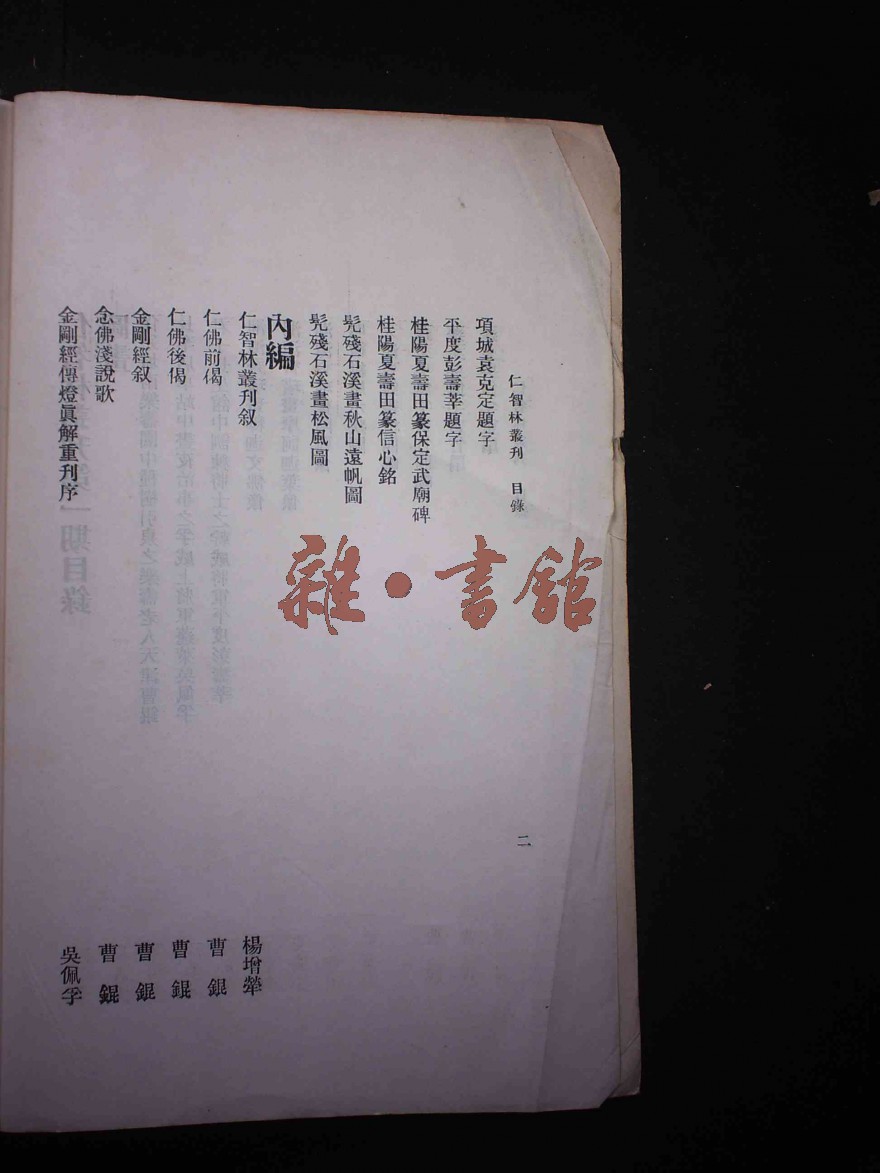 仁智林叢刊 目錄
二
項城袁克定題字
平度彭壽莘題字
桂陽夏壽田篆保定武廟碑
桂陽夏壽田篆信心銘
髠殘石溪畫秋山遠帆圖
髠殘石溪畫松風圖
內編
仁智林叢刊叙 楊增犖
仁佛前偈 曹錕
仁佛後偈 曹錕
金剛經叙 曹錕
念佛淺說歌 曹錕
金剛經傳燈眞解重刊序 吳佩孚
雜·書館